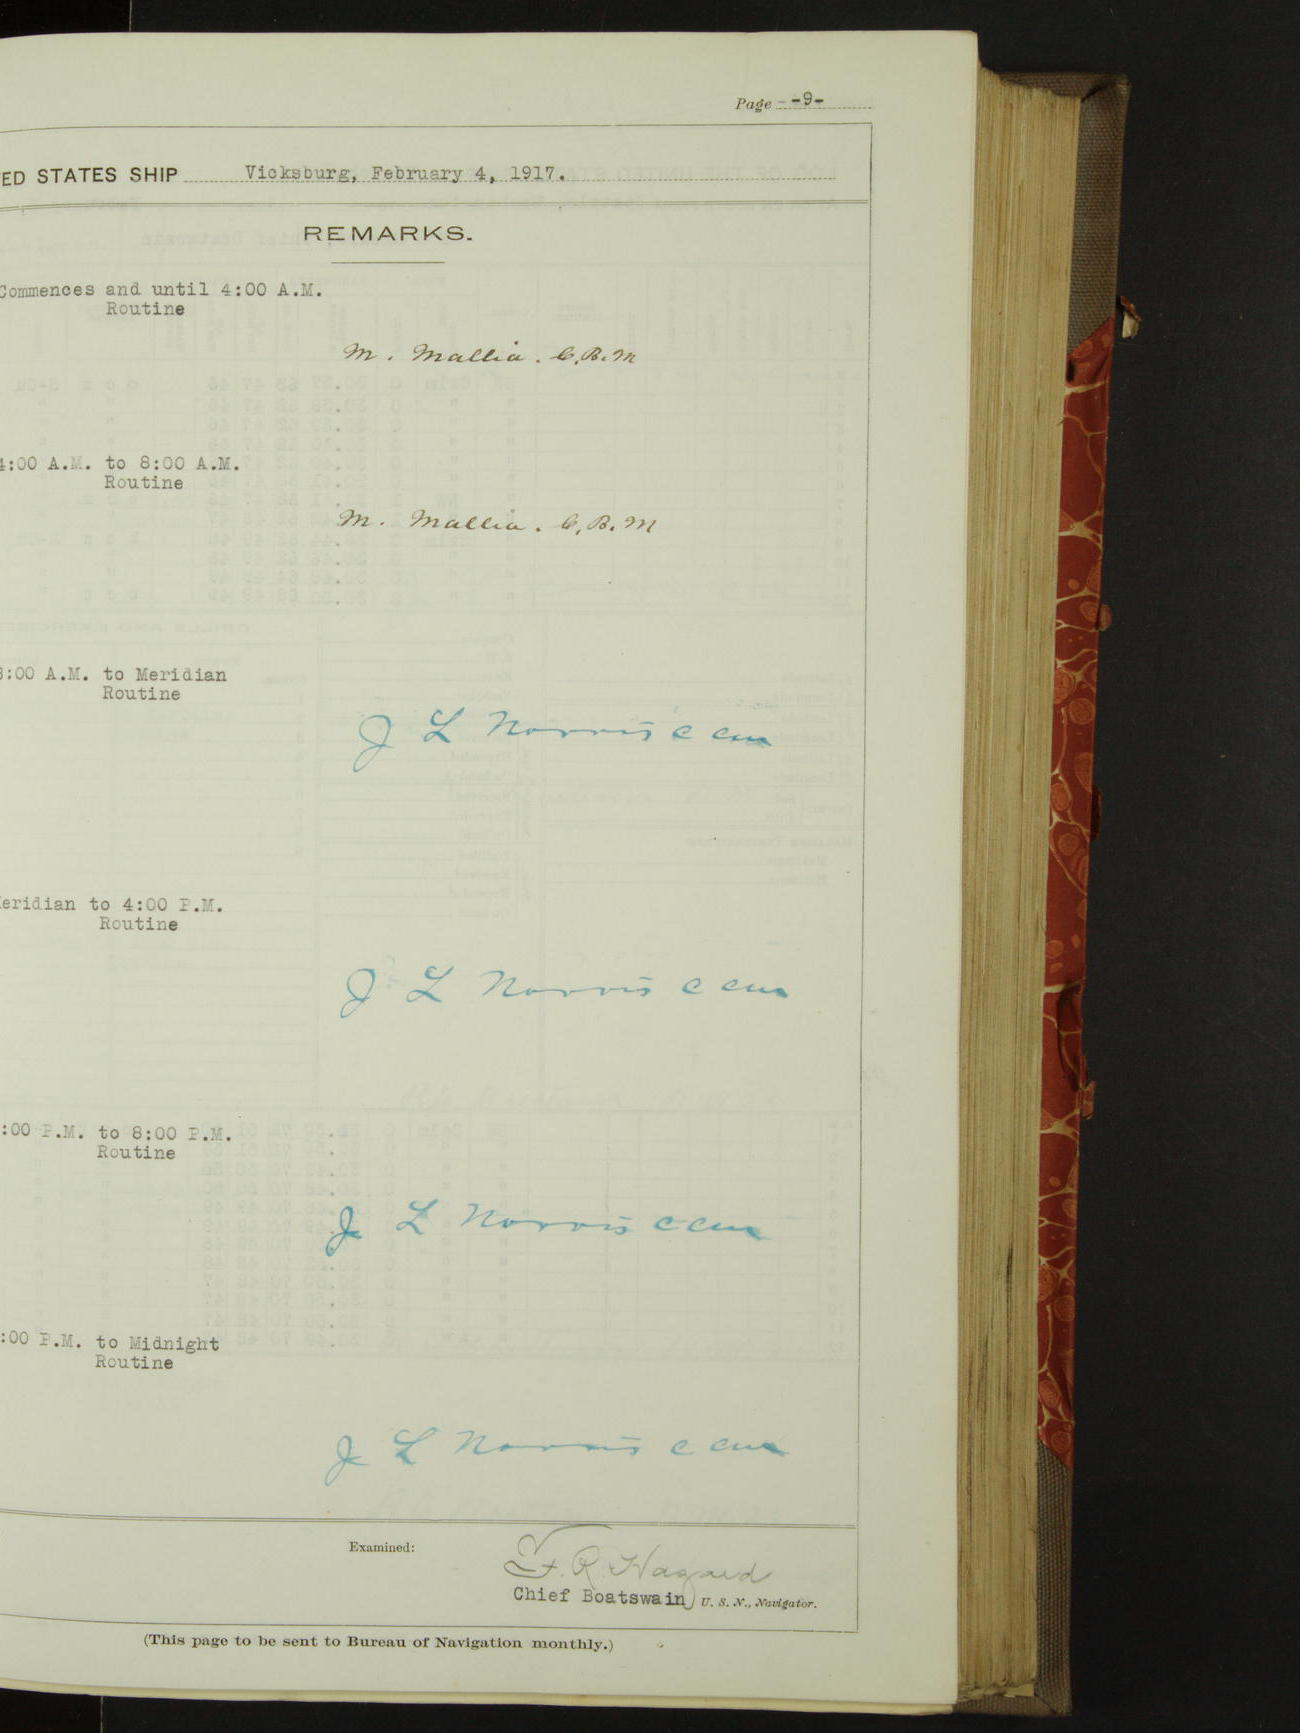 Page --9-
TED STATES SHIP Vicksburg, February 4, 1917.
REMARKS.
Commences and until 4:00 A.M.
Routine
M. Mallia. C.B.M
4:00 A.M. to 8:00 A.M.
Routine
M. Mallia. C.B.M
8:00 A.M. to Meridian
Routine
J L Norris C CM
Meridian to 4:00 P.M.
Routine
J L Norris C CM
:00 P.M. to 8:00 P.M.
Routine
J L Norris C CM
:00 P.M. to Midnight
Routine
J L Norris C CM
Examined:
F. R. Hazard
Chief Boatswain U. S. N., Navigator.
(This page to be sent to Bureau of Navigation monthly.)